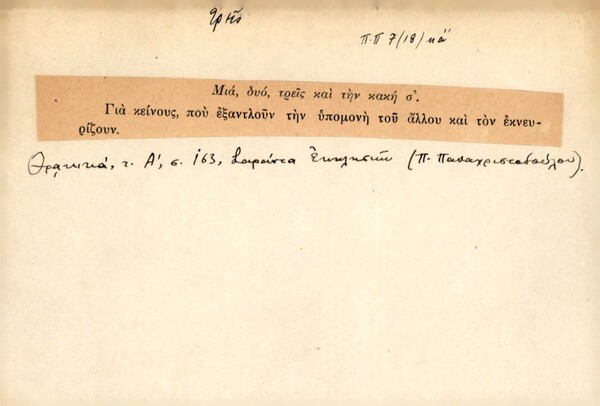 Π.Π 7/(18) κά
Μιά, δυό, τρεῖς καὶ τὴν κακή σ'.
Γιὰ κείνους, ποὺ ἐξαντλοῦν τὴν ὑπομονὴ τοῦ ἄλλου καὶ τὸν ἐκνευ-
ρίζουν.
Θρᾳκικά, τ. Α', σ. 163, Σαράντα Ἐκκλησιῶν (Π. Παπαχριστοδούλου).